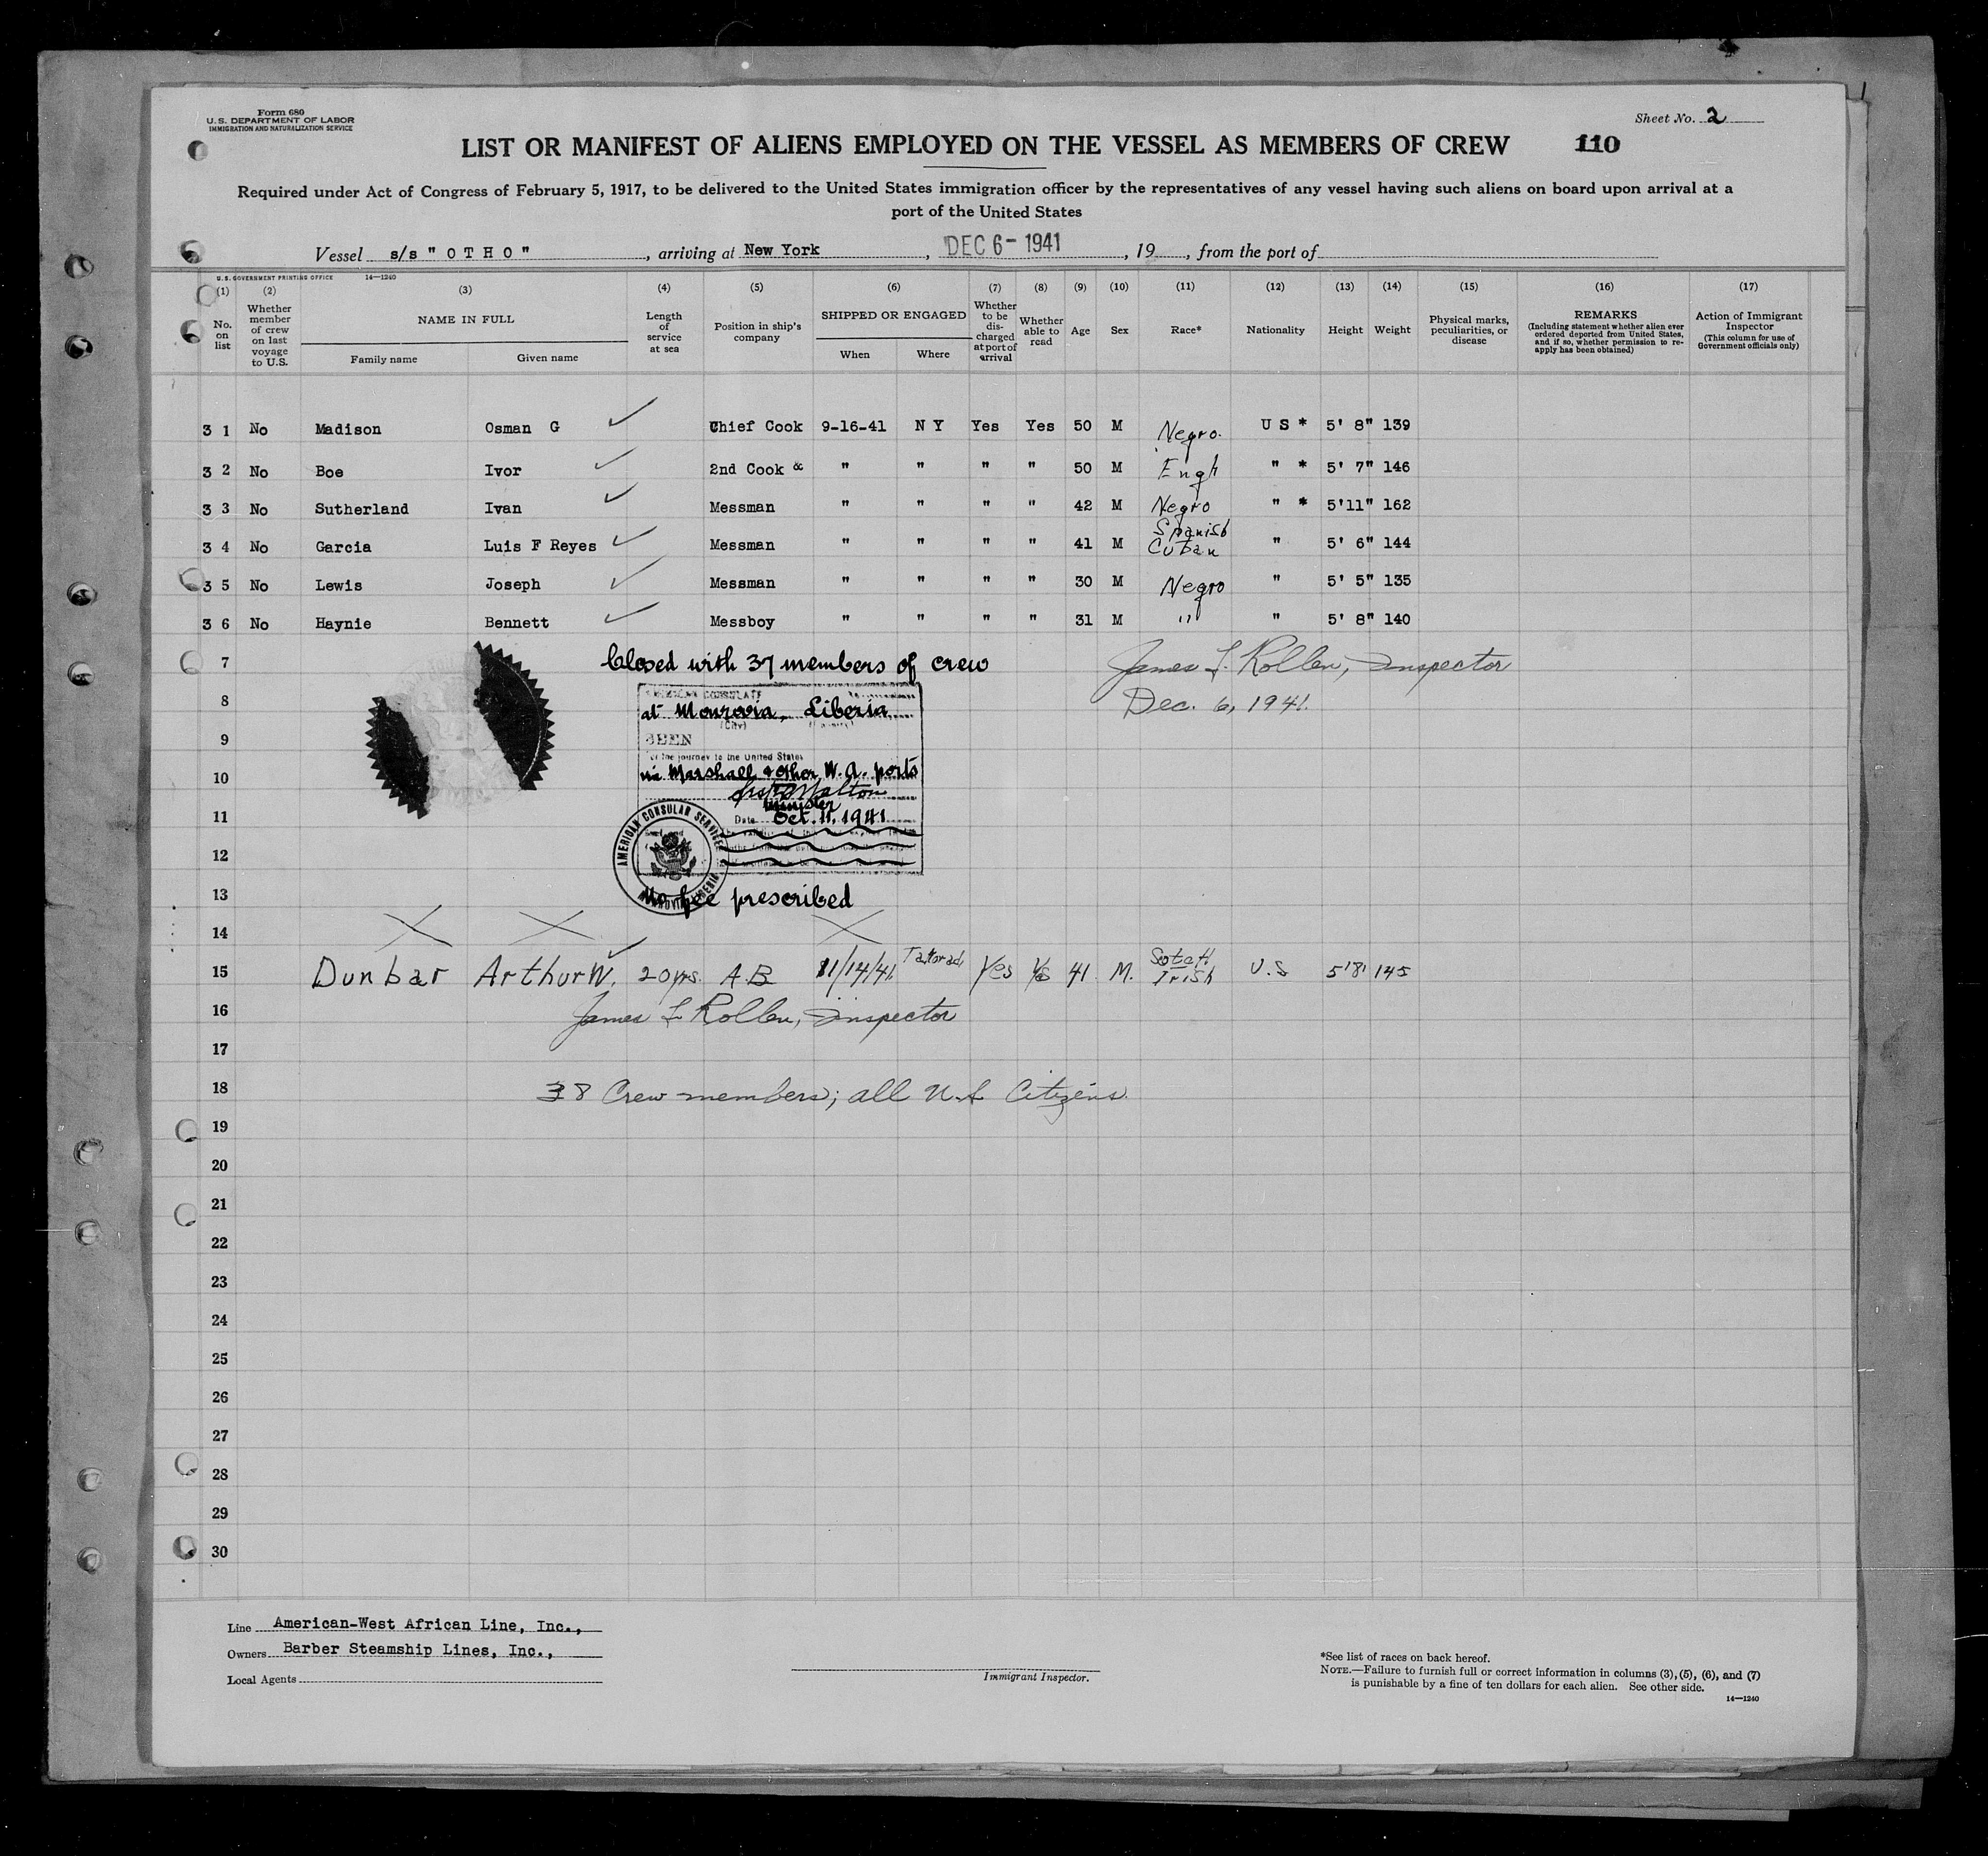 Form 680
U.S. DEPARTMENT OF LABOR
IMMIGRATION AND NATURALIZATION SERVICE
Sheet No. 2
LIST OR MANIFEST OF ALIENS EMPLOYED ON THE VESSEL AS MEMBERS OF CREW 110
Required under Act of Congress of February 5, 1917, to be delivered to the United States immigration officer by the representatives of any vessel having such aliens on board upon arrival at a
port of the United States
Vessel s/s "OTHO", arriving at New York, DEC 6- 1941, 19, from the port of
U.S. GOVERNMENT PRINTING OFFICE 14—1240
(1) No. on list
(2) Whether member of crew on last voyage to U.S.
(3) NAME IN FULL Family name Given name
(4) Length of service at sea
(5) Position in ship's company
(6) SHIPPED OR ENGAGED When Where
(7) Whether to be discharged at port of arrival
(8) Whether able to read
(9) Age
(10) Sex
(11) Race*
(12) Nationality
(13) Height
(14) Weight
(15) Physical marks, peculiarities, or disease
(16) REMARKS (Including statement whether alien ever ordered deported from United States, and if so, whether permission to re-apply has been obtained)
(17) Action of Immigrant Inspector (This column for use of Government officials only)
3 1 No Madison Osman G Chief Cook 9-16-41 N Y Yes Yes 50 M Negro. U S * 5' 8" 139
3 2 No Boe Ivor 2nd Cook & " " " " 50 M Engh " * 5' 7" 146
3 3 No Sutherland Ivan Messman " " " " 42 M Negro " * 5'11" 162
3 4 No Garcia Luis F Reyes Messman " " " " 41 M Spanish Cuban " 5' 6" 144
3 5 No Lewis Joseph Messman " " " " 30 M Negro " 5' 5" 135
3 6 No Haynie Bennett Messboy " " " " 31 M " " 5' 8" 140
7 Closed with 37 members of crew James L. Rollen, Inspector
8 AMERICAN CONSULATE
at Monrovia, Liberia Dec. 6, 1941.
(City)
9 SEEN
for the journey to the United States
10 via Marshall & other W.A. ports
Minister
11 Date Oct. 11, 1941
AMERICAN CONSULAR SERVICE
12
13 No fee prescribed
14
15 Dunbar Arthur W. 20 yrs. A.B 11/14/41 Takoradi Yes Yes 41 M. Scotch Irish U.S 5'8" 145
16 James L Rollen, Inspector
17
18 38 Crew members; all U.S. Citizens.
19
20
21
22
23
24
25
26
27
28
29
30
Line American-West African Line, Inc.,
Owners Barber Steamship Lines, Inc.,
Local Agents
Immigrant Inspector.
*See list of races on back hereof.
NOTE.—Failure to furnish full or correct information in columns (3), (5), (6), and (7)
is punishable by a fine of ten dollars for each alien. See other side.
14—1240